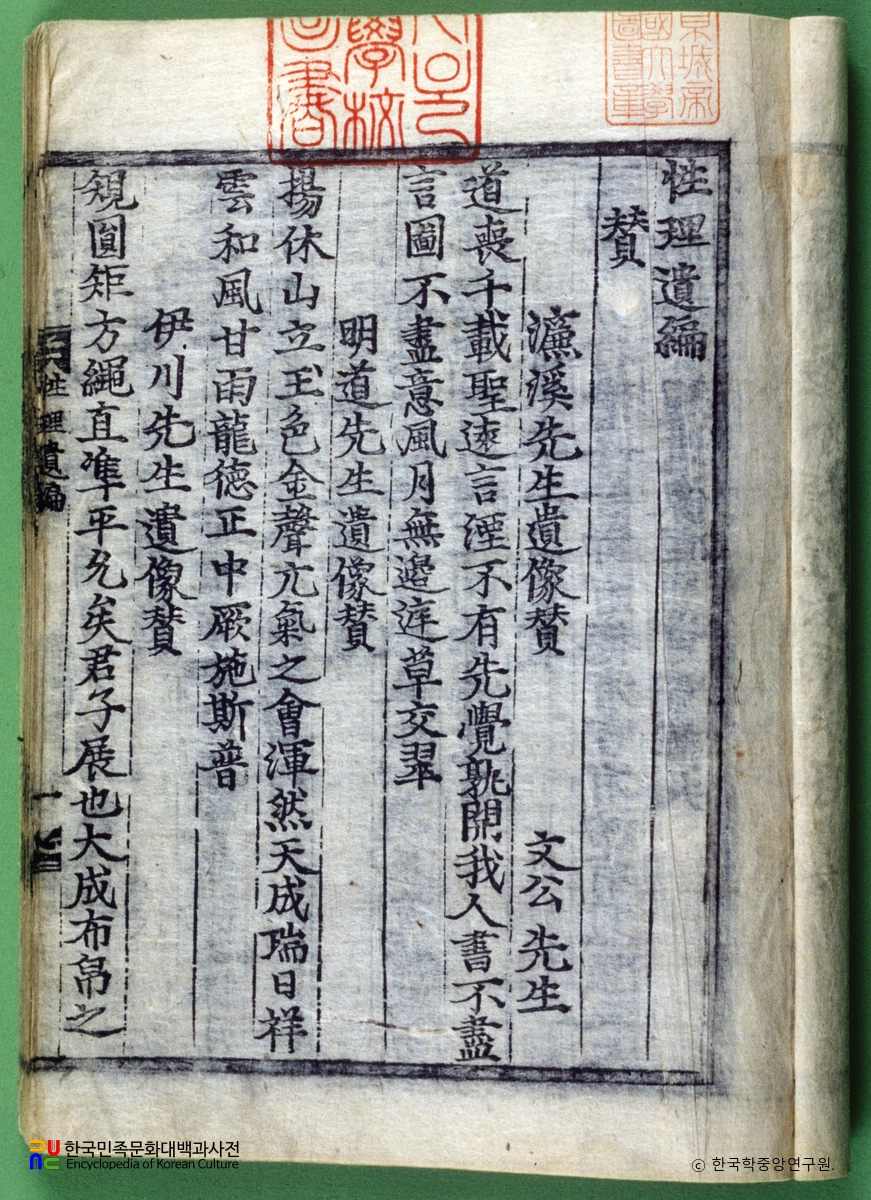 性理遺編
賛
濂溪先生遺像賛 文公先生
道喪千載聖逺言湮不有先覺孰開我人書不盡
言圖不盡意風月無邊庭草交翠
明道先生遺像賛
揚休山立玉色金聲亢氣之會渾然天成瑞日祥
雲和風甘雨龍德正中厥施斯普
伊川先生遺像賛
規圓矩方繩直準平允矣君子展也大成布帛之
性理遺編
一
學校
書
京城帝
國大學
圖書章
한국민족문화대백과사전
Encyclopedia of Korean Culture
© 한국학중앙연구원.